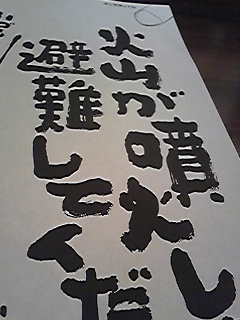 火山が噴火し
避難してくだ